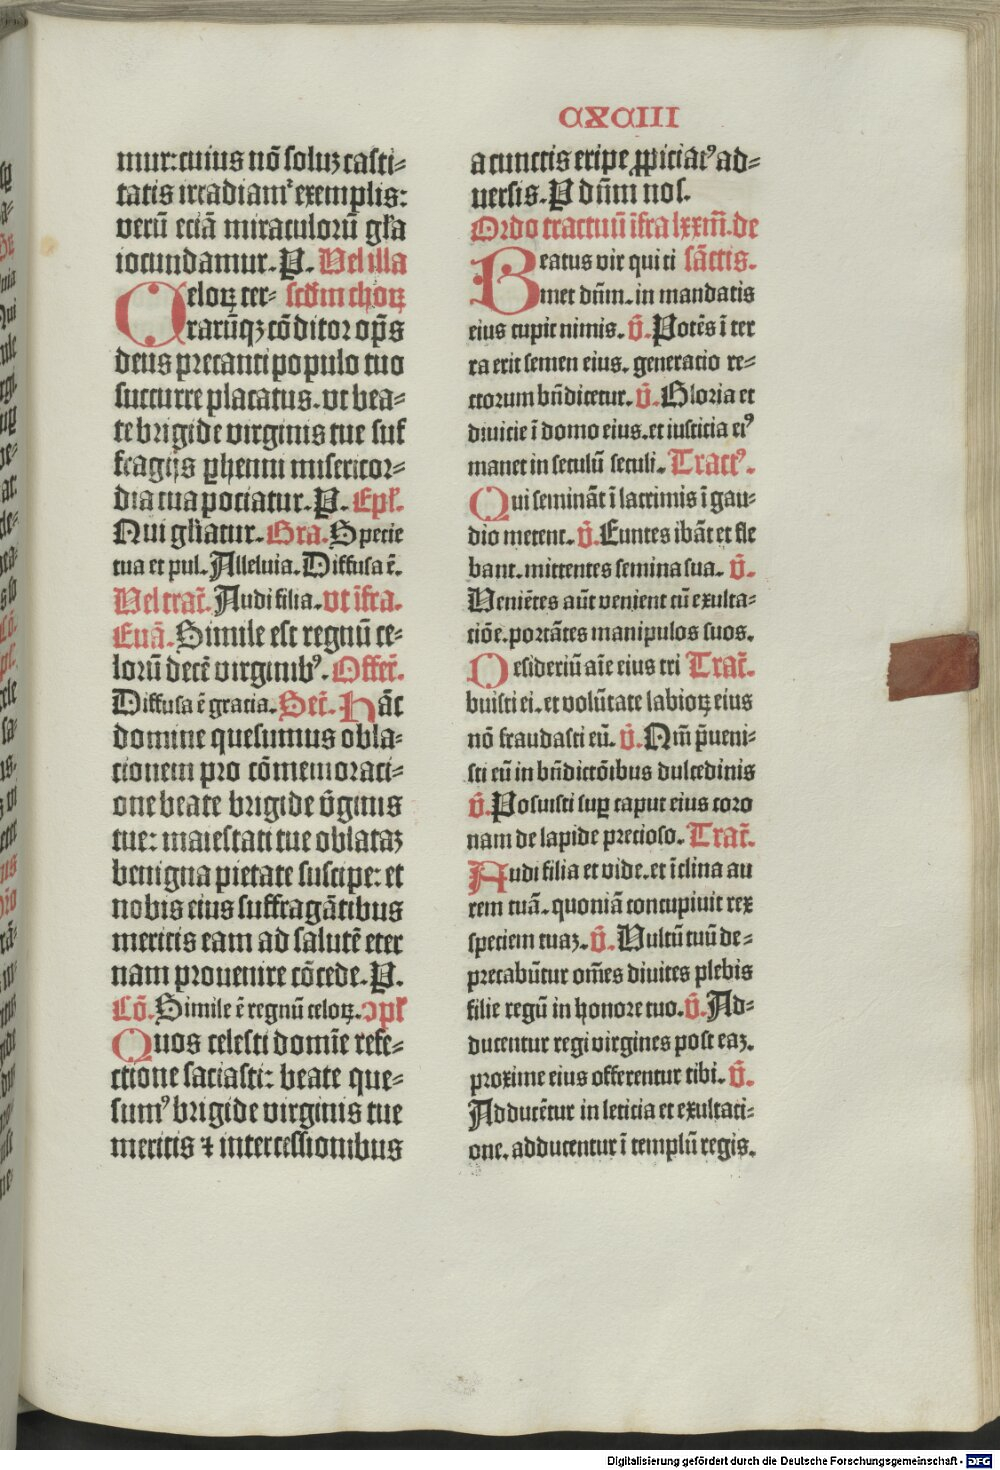 CXCIII
mur: cuius nō soluʒ casti-
tatis irradiamᷣ exemplis:
verū eciā miraculorū gl̄a
iocundamur. P. Vel illa
Celoꝝ ter- scd̄m choꝝ
rarūqʒ cōditor op̄s
deus precanti populo tuo
succurre placatus. vt bea-
te brigide virginis tue suf
fragijs ꝑhenni misericor-
dia tua pociatur. P. Epl̄.
Qui gl̄iatur. Gra. Specie
tua et pul. Alleluia. Diffusa ē.
Vel tract̄. Audi filia. vt īfra.
Euā. Simile est regnū ce-
lorū decē virginibꝰ. Offert̄.
Diffusa ē gracia. Secr̄. Hāc
domine quesumus obla-
tionem pro cōmemoraci-
one beate brigide v̄ginis
tue: maiestati tue oblataʒ
benigna pietate suscipe: et
nobis eius suffragātibus
meritis eam ad salutē eter
nam prouenire cōcede. P.
Cō. Simile ē regnū celoꝝ. ꝯpl̄
Quos celesti domīe refe-
ctione saciasti: beate que-
sumꝰ brigide virginis tue
meritis ⁊ intercessionibus
a cunctis eripe ꝓpiciatꝰ ad-
uersis. P dn̄m nos.
Ordo tractuū īfra lxxm̄. de
Beatus vir qui ti sāctis.
met dn̄m. in mandatis
eius cupit nimis. v̄. Potēs ī ter
ra erit semen eius. generatio re-
ctorum bn̄dicetur. v̄. Gloria et
diuicie ī domo eius. et iusticia eiꝰ
manet in seculū seculi. Tractꝰ.
Qui semināt ī lacrimis ī gau-
dio metent. v̄. Euntes ibāt et fle
bant. mittentes semina sua. v̄.
Veniētes aūt venient cū exulta-
tiōe. portātes manipulos suos.
Desideriū aīe eius tri Tract̄.
buisti ei. et volūtate labioꝝ eius
nō fraudasti eū. v̄. Qm̄ p̄ueni-
sti eū in bn̄dictōibus dulcedinis
v̄. Posuisti suꝑ caput eius coro
nam de lapide precioso. Tract̄.
Audi filia et vide. et īclina au
rem tuā. quoniā concupiuit rex
speciem tuaʒ. v̄. Vultū tuū de-
precabūtur om̄es diuites plebis
filie regū in honore tuo. v̄. Ad-
ducentur regi virgines post eaʒ.
proxime eius offerentur tibi. v̄.
Adducētur in leticia et exultaci-
one. adducentur ī templū regis.
Digitalisierung gefördert durch die Deutsche Forschungsgemeinschaft - DFG